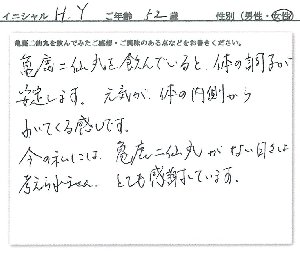 イニシャル H.Y ご年齢 52 歳 性別（男性・女性）
亀鹿二仙丸を飲んでみたご感想・ご興味のある点などをお書きください。
亀鹿二仙丸を飲んでいると、体の調子が
安定します。 元気が、体の内側から
わいてくる感じです。
今の私には、亀鹿二仙丸がない日々は
考えられません。とても感謝しています。